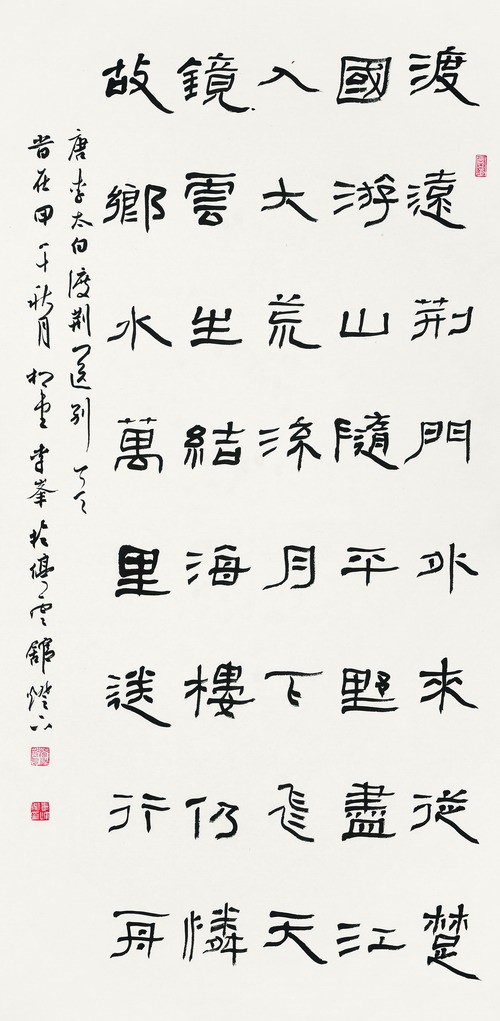 渡遠荆門外来從楚
國游山隨平野盡江
入大荒流月下飛天
鏡雲生結海樓仍憐
故鄉水萬里送行舟
唐李太白渡荆門送别
岀在甲午秋月李峯於雲館燈下